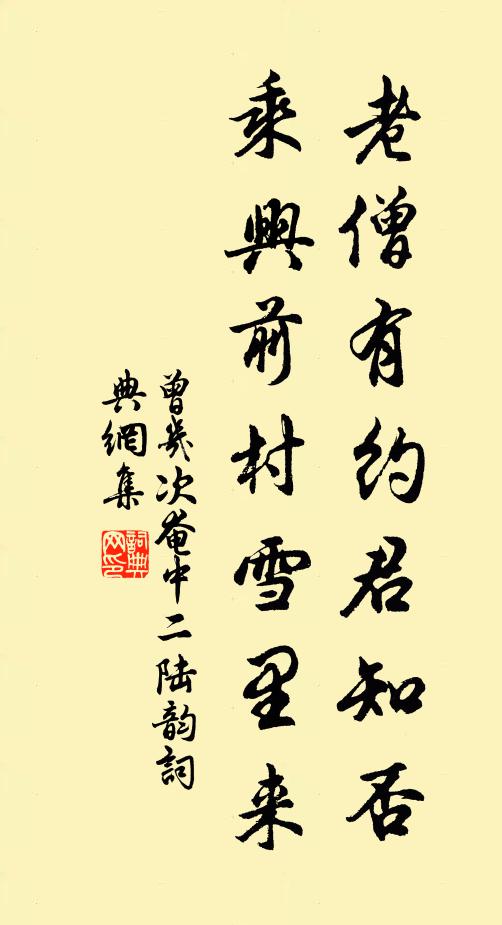 老僧有约君知否
乘興前村雪里来
曾幾次菴中二陆韵詞
典網集
詞典网印